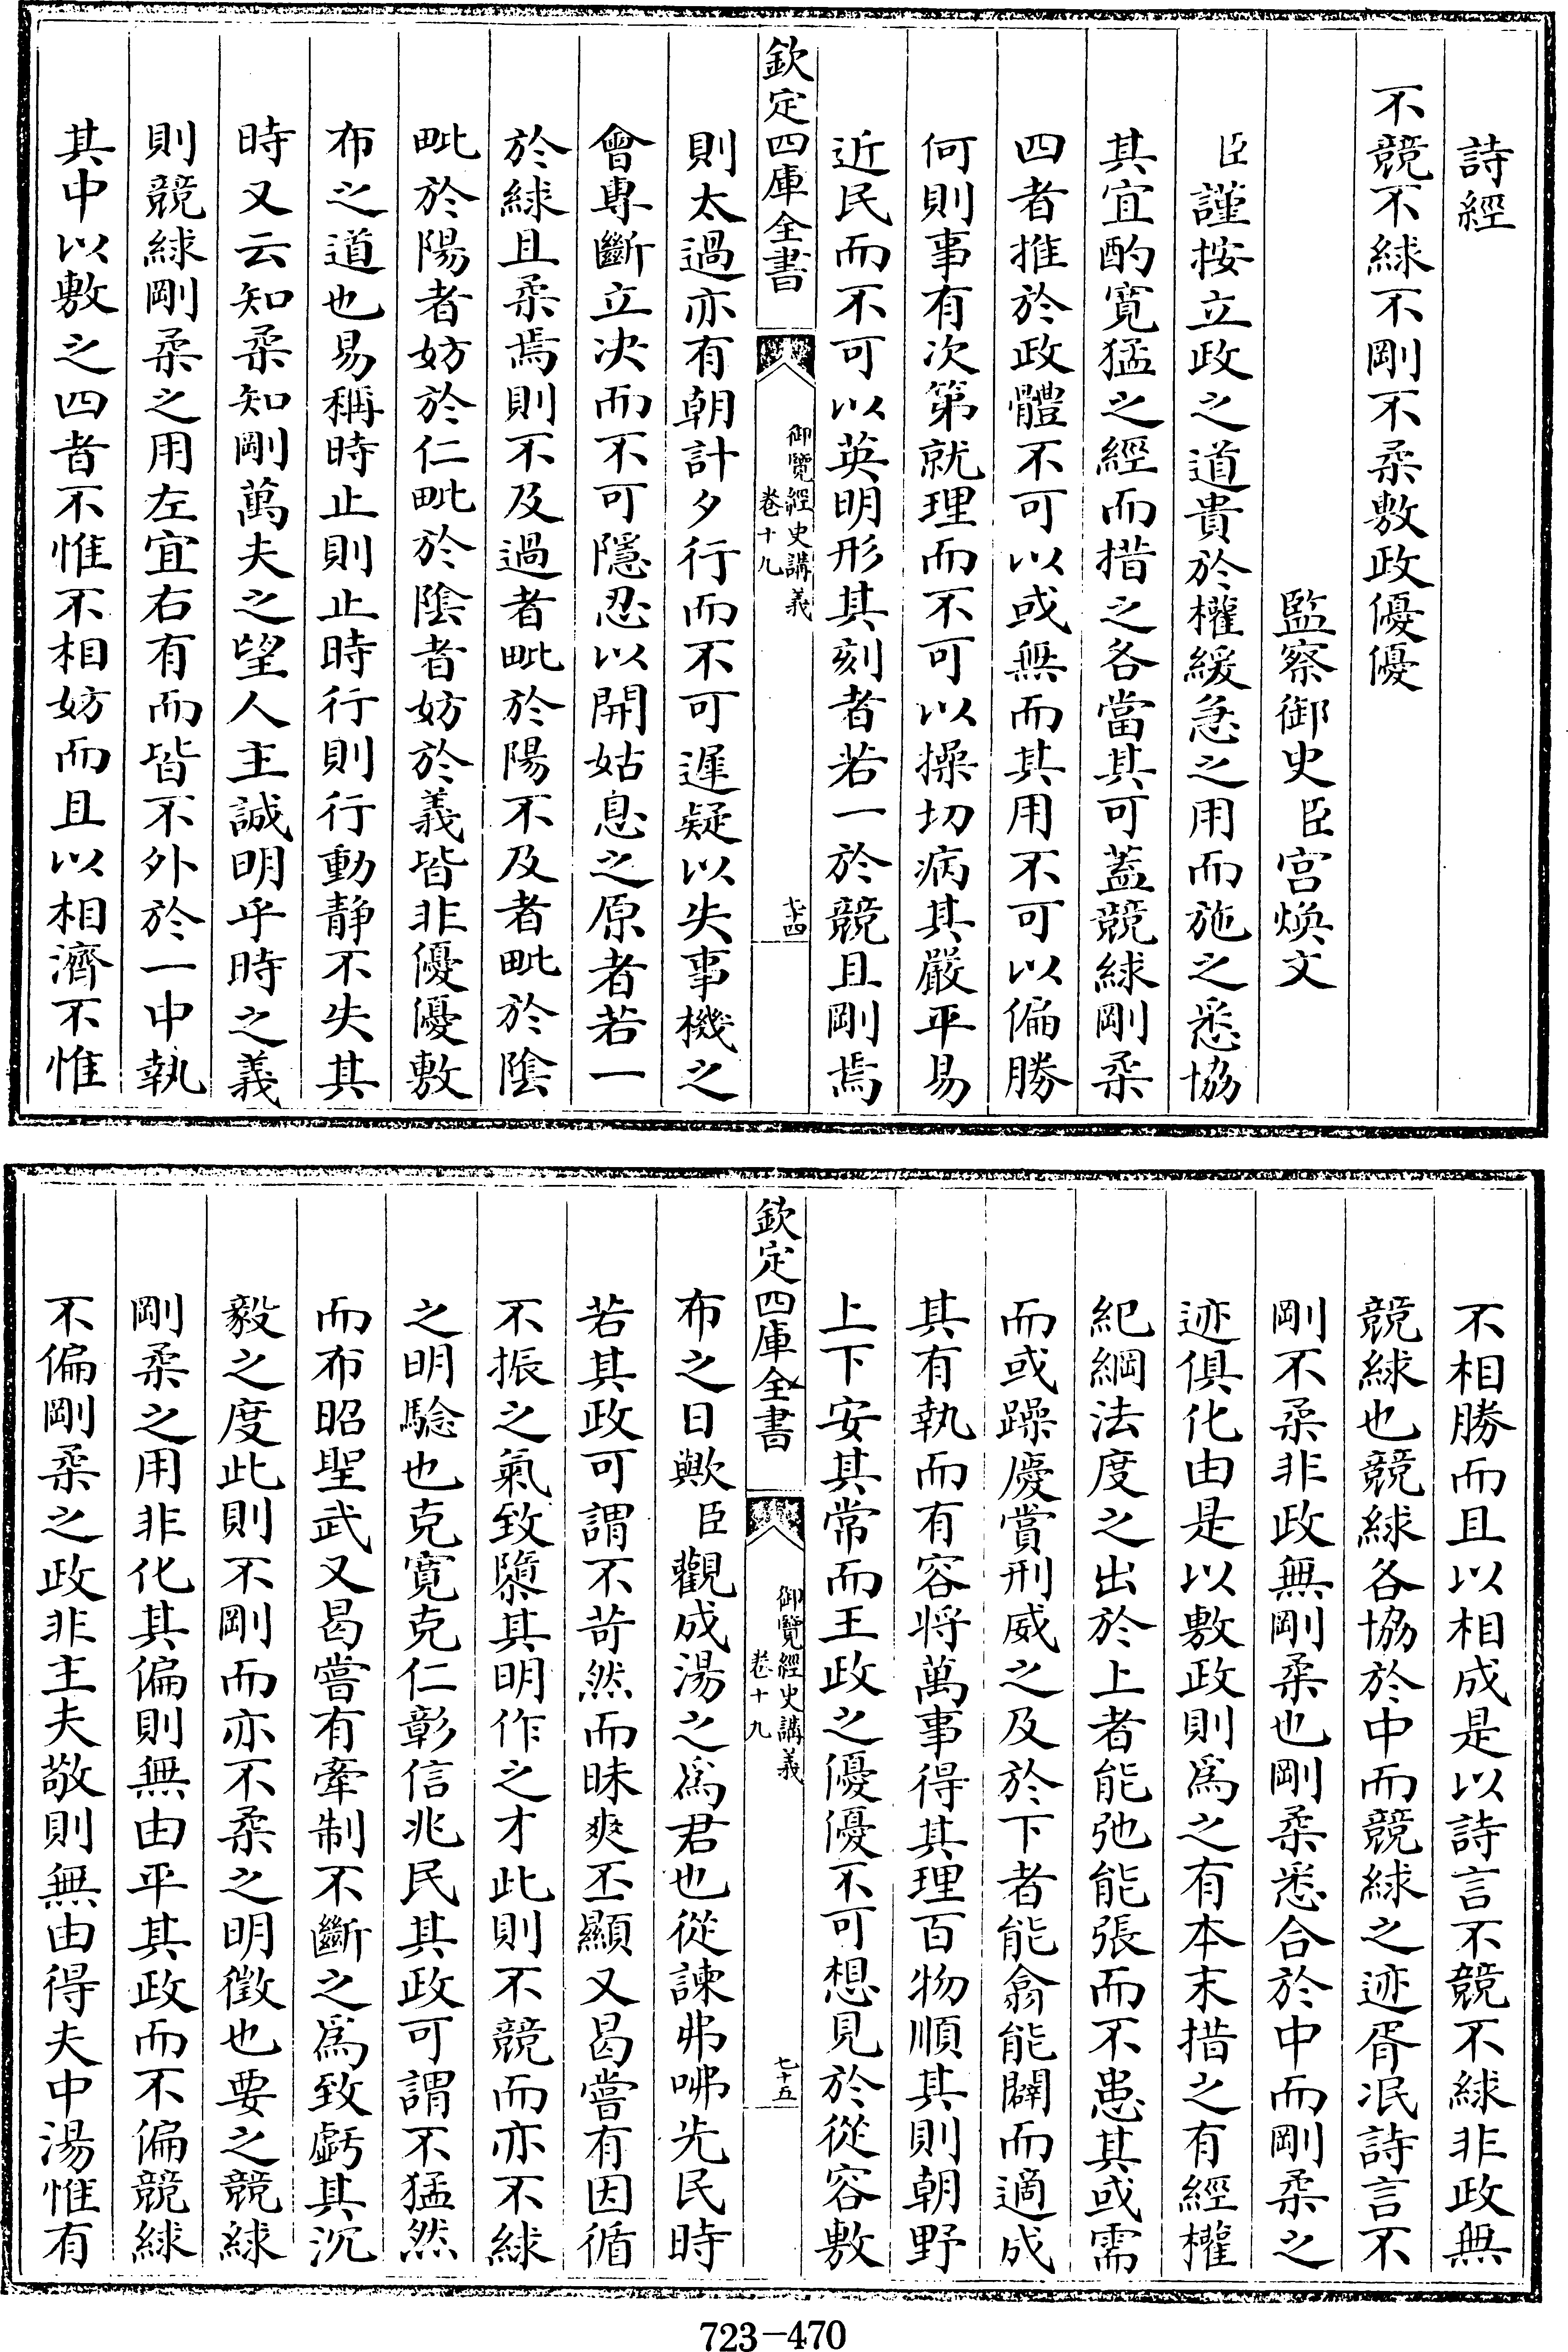 詩經
不競不絿不剛不柔敷政優優
監察御史臣宫煥文
臣謹按立政之道貴於權緩急之用而施之悉協
其宜酌寛猛之經而措之各當其可蓋競絿剛柔
四者推於政體不可以或無而其用不可以偏勝
何則事有次第就理而不可以操切病其嚴平易
近民而不可以英明形其刻者若一於競且剛焉
欽定四庫全書
御覽經史講義
卷十九
七十四
則太過亦有朝計夕行而不可遲疑以失事機之
會專斷立决而不可隱忍以開姑息之原者若一
於絿且柔焉則不及過者毗於陽不及者毗於陰
毗於陽者妨於仁毗於陰者妨於義皆非優優敷
布之道也易稱時止則止時行則行動静不失其
時又云知柔知剛萬夫之望人主誠明乎時之義
則競絿剛柔之用左宜右有而皆不外於一中執
其中以敷之四者不惟不相妨而且以相濟不惟
不相勝而且以相成是以詩言不競不絿非政無
競絿也競絿各協於中而競絿之迹胥泯詩言不
剛不柔非政無剛柔也剛柔悉合於中而剛柔之
迹俱化由是以敷政則爲之有本末措之有經權
紀綱法度之出於上者能弛能張而不患其或需
而或躁慶賞刑威之及於下者能翕能闢而適成
其有執而有容将萬事得其理百物順其則朝野
上下安其常而王政之優優不可想見於從容敷
欽定四庫全書
御覽經史講義
卷十九
七十五
布之日歟臣觀成湯之爲君也從諫弗咈先民時
若其政可謂不苛然而昧爽丕顯又曷嘗有因循
不振之氣致隳其明作之才此則不競而亦不絿
之明驗也克寛克仁彰信兆民其政可謂不猛然
而布昭聖武又曷嘗有牽制不斷之爲致虧其沉
毅之度此則不剛而亦不柔之明徵也要之競絿
剛柔之用非化其偏則無由平其政而不偏競絿
不偏剛柔之政非主夫敬則無由得夫中湯惟有
723-470